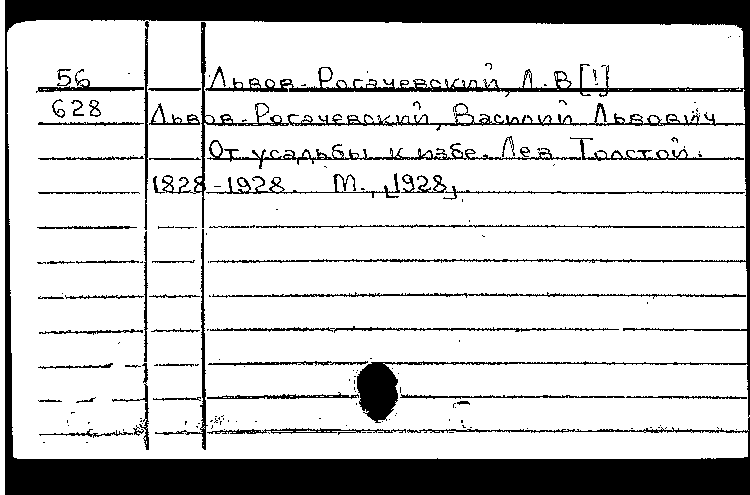 56 Львов-Рогачевский, Л. В [!]
628 Львов-Рогачевский, Василий Львович
От усадьбы к избе. Лев Толстой.
1828-1928. М., [1928].